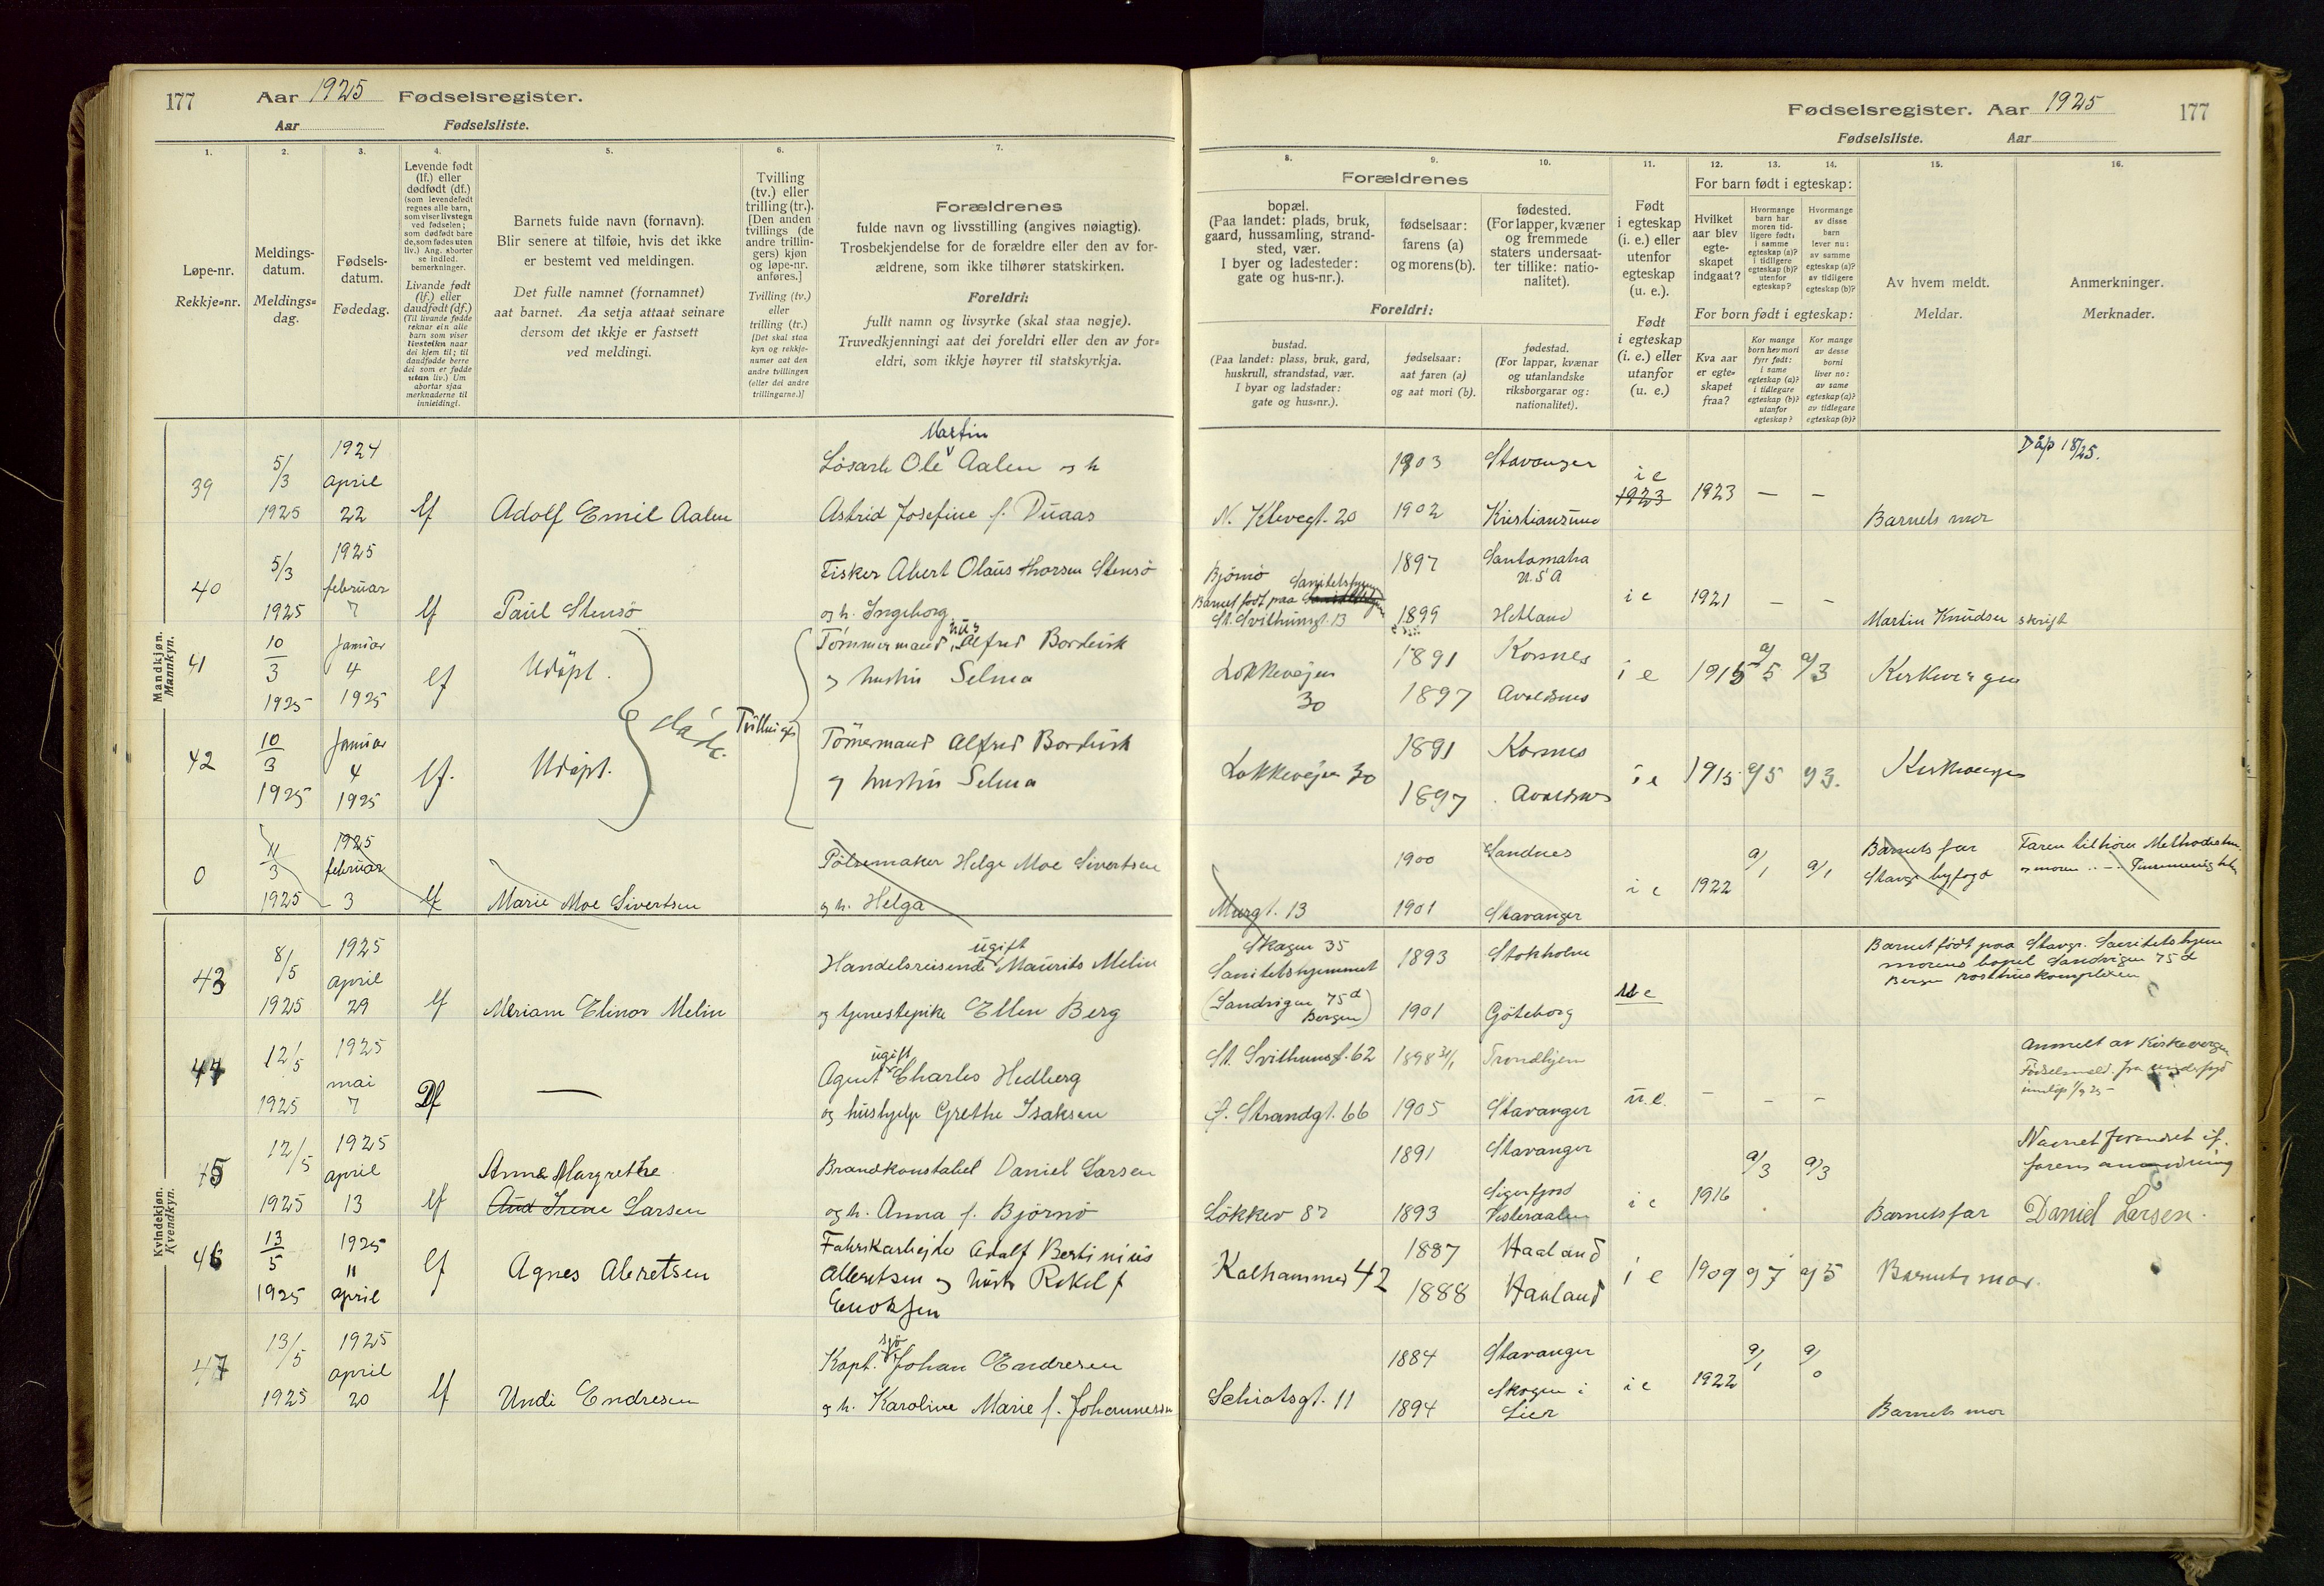 177
Aar 1925 Fødselsregister.
Aar Fødselsliste.
1.
2.
3.
4.
5.
6.
7.
Løpe-nr.
Rekkje=nr.
Meldings-
datum.
Meldings=
dag.
Fødsels-
datum.
Fødedag.
Levende født
(lf.) eller
dødfødt (df.)
(som levendefødt
regnes alle barn,
som viser livstegn
ved fødselen;
som dødfødt bare
de, som fødes uten
liv.) Ang. aborter
se indled.
bemerkninger.
Livande født
(lf.) eller
daudfødt (df.)
(Til livande fødde
reknar ein alle
barn som viser
livsteikn naar
dei kjem til; til
daudfødde berre
dei som er fødde
utan liv.) Um
abortar sjaa
merknaderne til
innleidingi.
Barnets fulde navn (fornavn).
Blir senere at tilføie, hvis det ikke
er bestemt ved meldingen.
Det fulle namnet (fornamnet)
aat barnet. Aa setja attaat seinare
dersom det ikkje er fastsett
ved meldingi.
Tvilling
(tv.) eller
trilling (tr.).
[Den anden
tvillings (de
andre trillin-
gers) kjøn
og løpe-nr.
anføres.]
Tvilling (tv.)
eller
trilling (tr.)
[Det skal staa
kyn og rekkje-
numer aat den
andre tvillingen
(eller dei andre
trillingarne.)]
Forældrenes
fulde navn og livsstilling (angives nøiagtig).
Trosbekjendelse for de forældre eller den av for-
ældrene, som ikke tilhører statskirken.
Foreldri:
fullt namn og livsyrke (skal staa nøgje).
Truvedkjenningi aat dei foreldri eller den av for=
eldri, som ikkje høyrer til statskyrkja.
Mandkjøn.
Mannkyn.
39
5/3
1925
1924
april
22
lf
Adolf Emil Aalen
Martin
Løsarb Ole Aalen og h
Astrid Josefine f. Duaas
40
5/3
1925
1925
februar
7
lf
Paul Stensø
Fisker Abert Olaus Thorsen Stensø
og h. Ingeborg
41
10
3
1925
Januar
4
1925
lf
Udøpt.
Tømmermand Alfred Bordevik
og hustru Selma
Tvillinger
42
10
3
1925
Januar
4
1925
lf.
Udøpt.
Tømermand Alfred Bordevik
og hustru Selma
0
11
3
1925
1925
februar
3
lf
Marie Moe Sivertsen
Pølsemaker Helge Moe Sivertsen
og h. Helga
Kvindekjøn.
Kvendkyn.
43
8/5
1925
1925
april
29
lf
Meriam Elinor Melin
ugift
Handelsreisende Maurits Melin
og tjenestepike Ellen Berg
44
12/5
1925
1925
mai
7
Df
—
ugift
Agent Charles Hedberg
og hushjelp Grethe Isaksen
45
12/5
1925
1925
april
13
lf
Anna Margrethe
Aud Irene Larsen
Brandkonstabel Daniel Larsen
og h. Anna f. Bjørnø
46
13
5
1925
1925
11
april
lf
Agnes Aleretsen
Fabrikarbejder Adolf Bertinius
Alleretsen og hustr Rakel f
Enoksen
47
13/5
1925
1925
april
20
lf
Undi Endresen
sjø
Kapt. Johan Endresen
og h. Karoline Marie f. Johannesen
Fødselsregister. Aar 1925
177
Fødselsliste. Aar
8.
9.
10.
11.
12.
13.
14.
15.
16.
Forældrenes
bopæl.
(Paa landet: plads, bruk,
gaard, hussamling, strand-
sted, vær.
I byer og ladesteder:
gate og hus-nr.).
fødselsaar:
farens (a)
og morens (b).
fødested.
(For lapper, kvæner
og fremmede
staters undersaat-
ter tillike: natio-
nalitet).
Foreldri:
bustad.
(Paa landet: plass, bruk, gard,
huskrull, strandstad, vær.
I byar og ladstader:
gate og hus=nr.).
fødselsaar:
aat faren (a)
og aat mori (b).
fødestad.
(For lappar, kvænar
og utanlandske
riksborgarar og:
nationalitet).
Født
i egteskap
(i. e.) eller
utenfor
egteskap
(u. e.).
Født
i egteskap
(i. e.) eller
utanfor
(u. e.)
For barn født i egteskap:
Hvilket
aar blev
egte-
skapet
indgaat?
Hvormange
barn har
moren tid-
ligere født:
i samme
egteskap (a)?
i tidligere
egteskap (b)?
utenfor
egteskap?
Hvormange
av disse
barn
lever nu:
av samme
egteskap (a)?
av tidligere
egteskap (b)?
For born født i egteskap:
Kva aar
er egte=
skapet
fraa?
Kor mange
born hev mori
fyrr født:
i same
egteskap (a)?
i tidlegare
egteskap (b)?
utanfor
egteskap?
Kor mange
av desse
borni
liver no:
av same
egteskap (a)?
av tidlegare
egteskap (b)?
Av hvem meldt.
Meldar.
Anmerkninger.
Merknader.
N. Klevegt. 20
1903
1902
Stavanger
Kristiansund
i e
1923
1923
—
—
Barnets mor
Bjørnø
Barnet født paa Sanitetshjem
St. Svithunsgt. 13
1897
1899
Santamaha
U.S.A
Hetland
i e
1921
–
–
Martin Knudsen skrigt
Løkkevejen
30
1891
1897
Kornes
Avaldsnes
i e
1915
a/5
a/3
Kirkevergen
Løkkevejen 30
1891
1897
Kornes
Avaldsnes
i e
1915
a/5
a/3.
Kirkevergen
Murgt. 13
1900
1901
Sandnes
Stavanger
i e
1922
a/1
a/1
Barnets far
Stavgr byfogd
Faren tilhører Methodistm.
og moren
Skagen 35
Sanitetshjemmet
(Sandvigen 75d
Bergen)
1893
1901
Stokholm
Göteborg
u e
Barnet født paa Stavgr. Sanitetshjem
morens bopel Sandvigen 75d
Bergen
St. Svithunsgt. 62
f. Strandgt. 66
1898 31/1
1905
Trondhjem
Stavanger
u. e.
–
–
–
Anmelt av Kirkevergen
Fødselsmeld. fra
Løkkev 87
1891
1893
Stavanger
Sigerfjord
Vesteraalen
i e
1916
a/3
a/3
Barnets far
Navnet forandret if.
farens anmodning
Daniel Larsen.
Kalhammer 42
1887
1888
Haaland
Haaland
i e
1909
a/7
a/5
Barnets mor.
Schiøtsgt. 11
1884
1894
Stavanger
Skogen i
Lier
i e
1922
a/1
a/0
Barnets mor